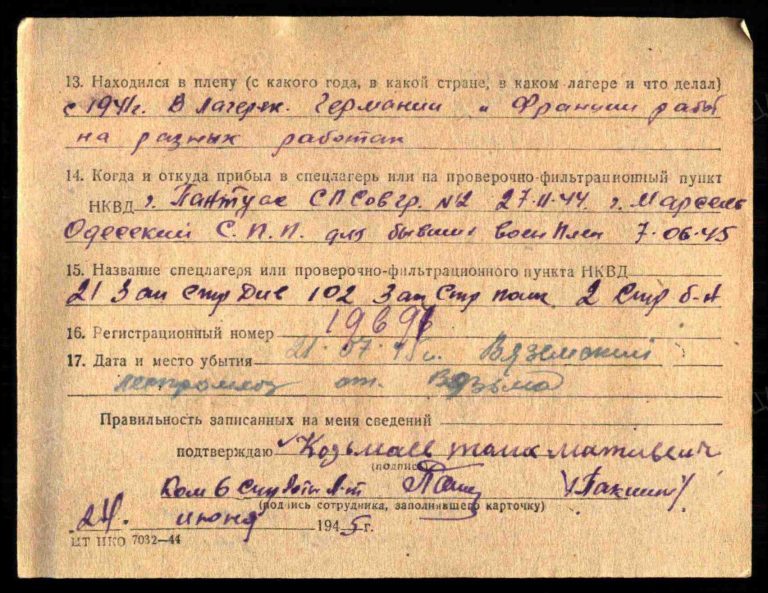 13. Находился в плену (с какого года, в какой стране, в каком лагере и что делал)
с 1941г. В лагерях. Германии и Франции рабы
на разных работах
14. Когда и откуда прибыл в спецлагерь или на проверочно-фильтрационный пункт
НКВД г. СП Сов гр. №2 27-11-44 г. Марсель
Одесский С.П.П. для бывших воен Плен 7-06-45
15. Название спецлагеря или проверочно-фильтрационного пункта НКВД
21 Зап Стр Див 102 Зап Стр полк 2 Стр б-н
16. Регистрационный номер 19696
17. Дата и место убытия 21.07.45г. Вяземский
ст. Вязьма
Правильность записанных на меня сведений
подтверждаю Козьмаев
(подпись)
Ком 6 Стр Роты Л-т
(подпись сотрудника, заполнившего карточку)
24. июня 1945г.
ЦТ НКО 7032—44